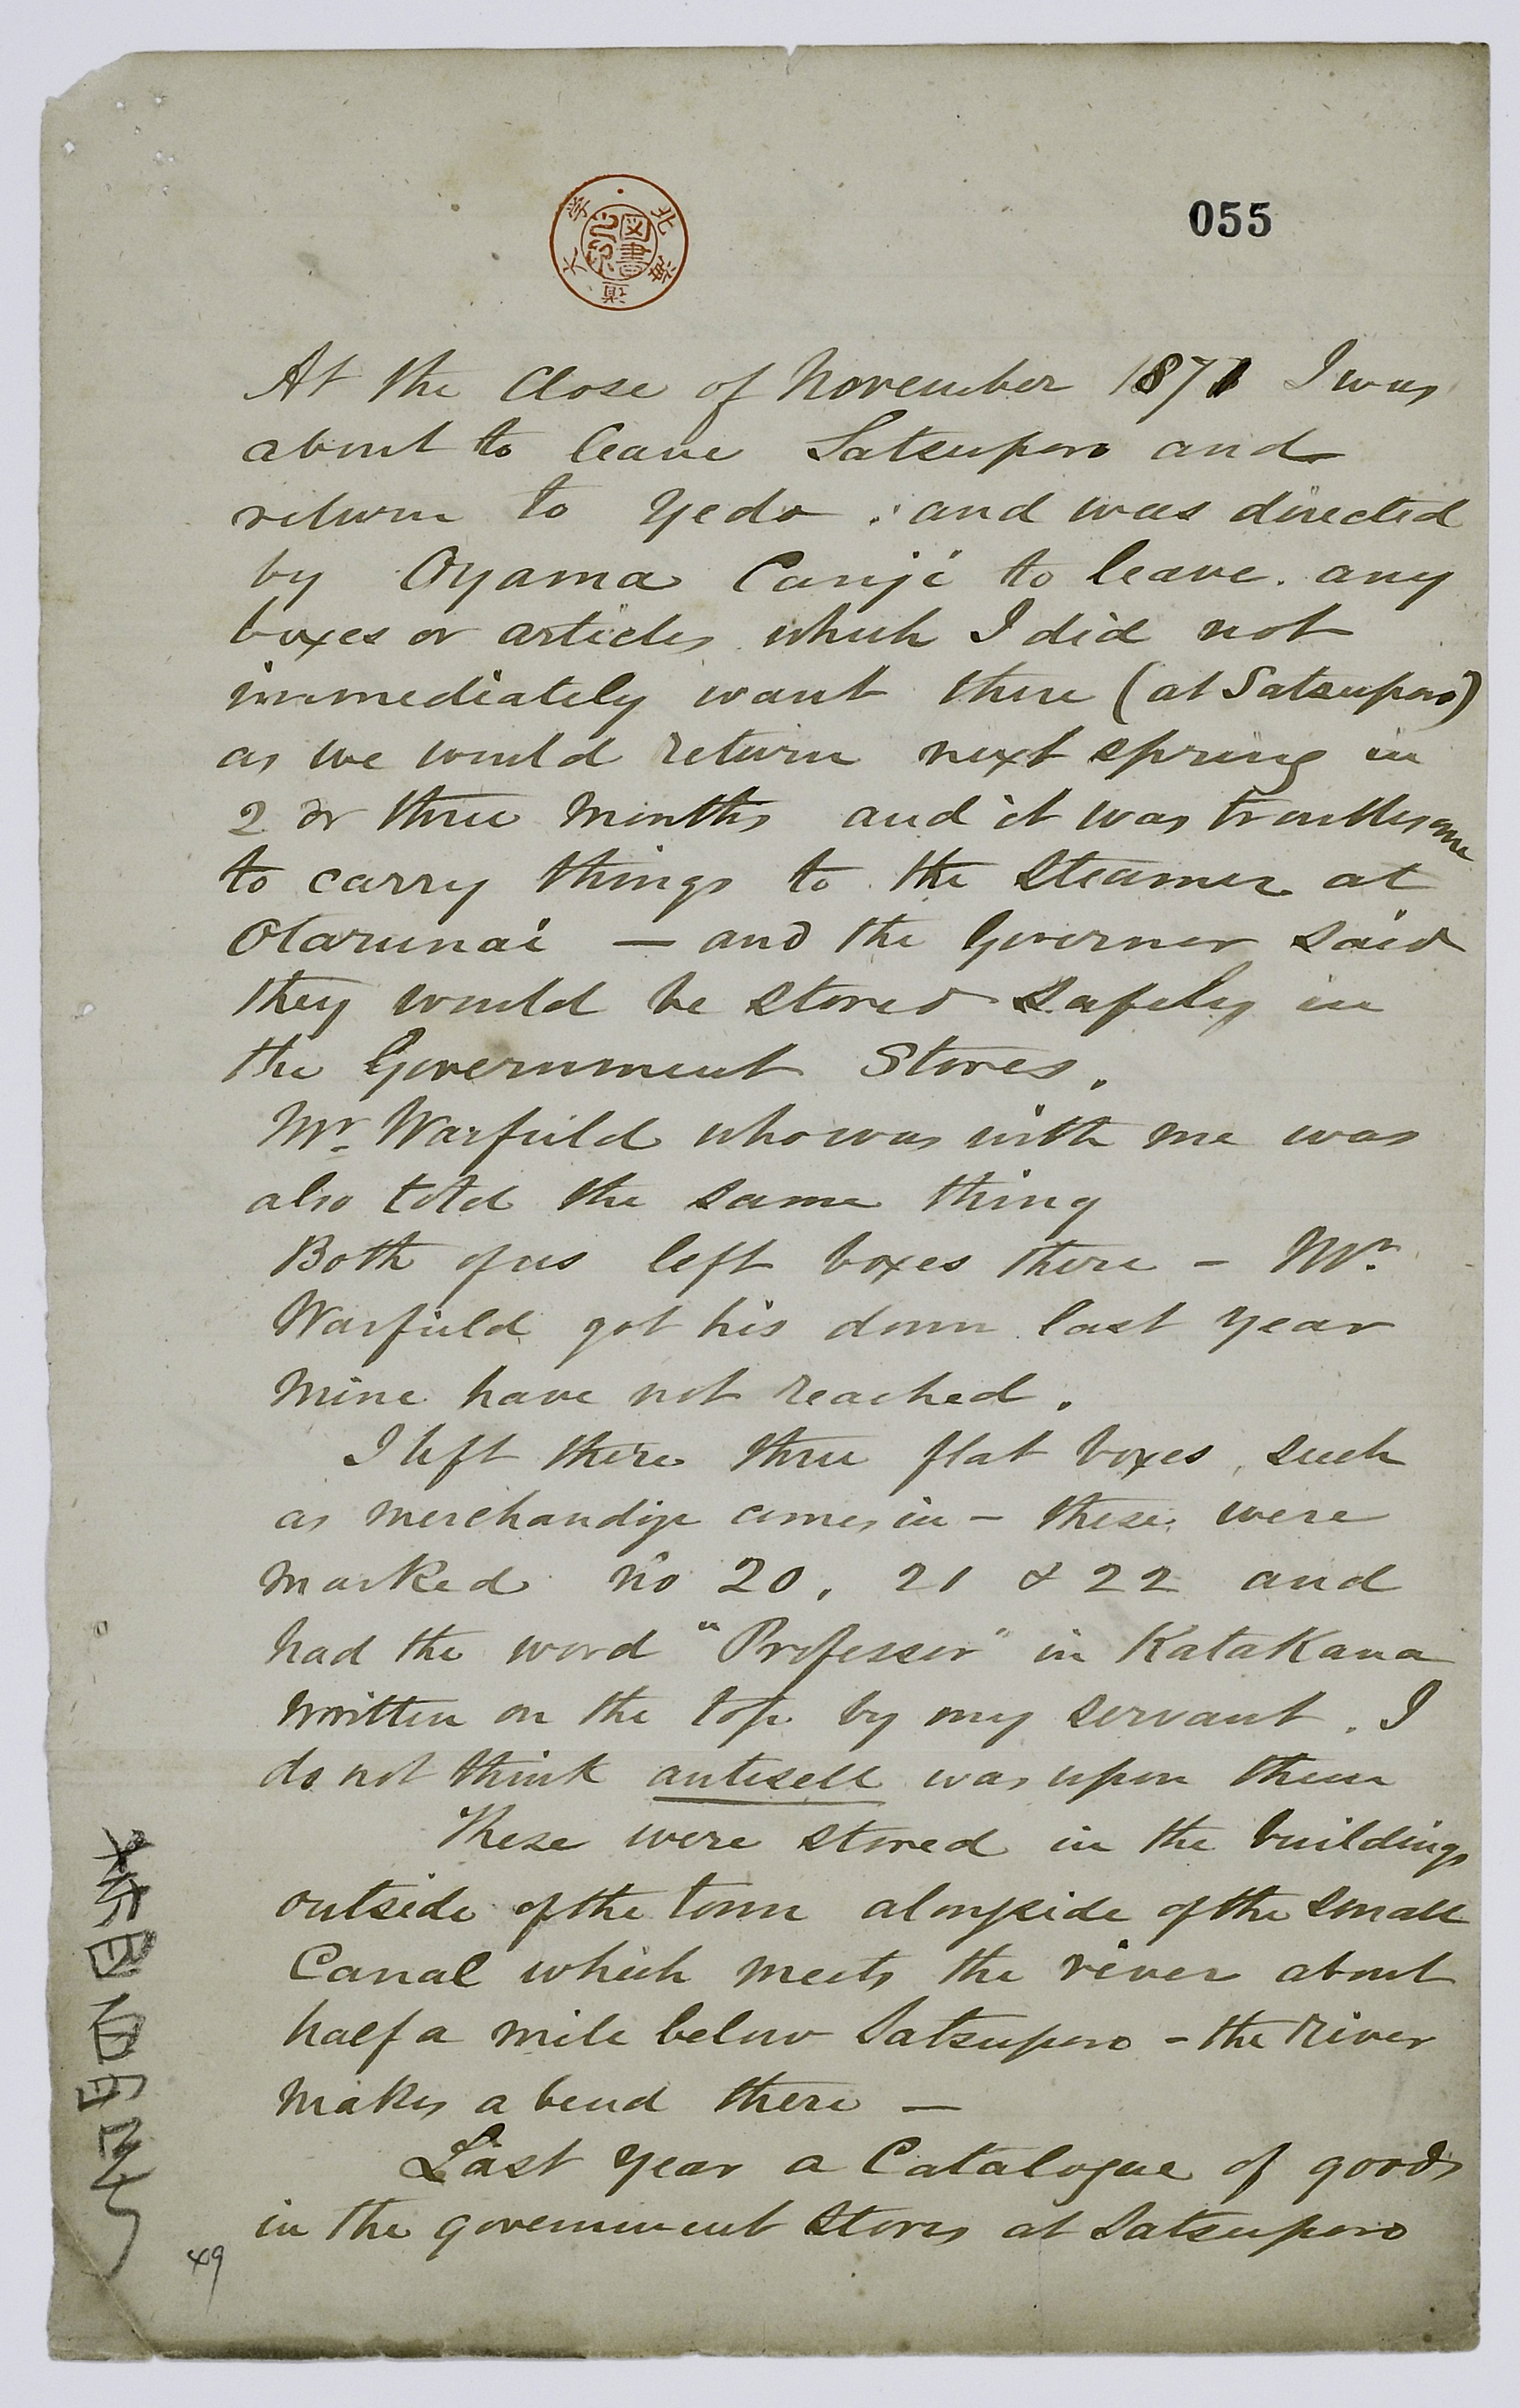 055
北海道大学
図書
At the Close of November 1871 I was
about to leave Satsuporo and
return to Yedo . and was directed
by Oyama Canji to leave . any
boxes or articles which I did not
immediately want there (at Satsuporo)
as we would return next spring in
2 or three Months and it was troublesome
to carry things to the Steamer at
Otarunai — and the Governor said
they would be stored safely in
the Government Stores.
Mr. Warfield who was with me was
also told the same thing
Both of us left boxes there - Mr.
Warfield got his down last year
Mine have not reached.
I left there three flat boxes, such
as merchandize comes in - these were
Marked No 20, 21 & 22 and
had the word "Professor" in KataKana
written on the top by my servant. I
do not think antisell was upon them
These were stored in the buildings
outside of the town alongside of the small
Canal which meets the river about
half a mile below Satsuporo - the River
Makes a bend there —
Last Year a Catalogue of goods
in the government Stores at Satsuporo
49